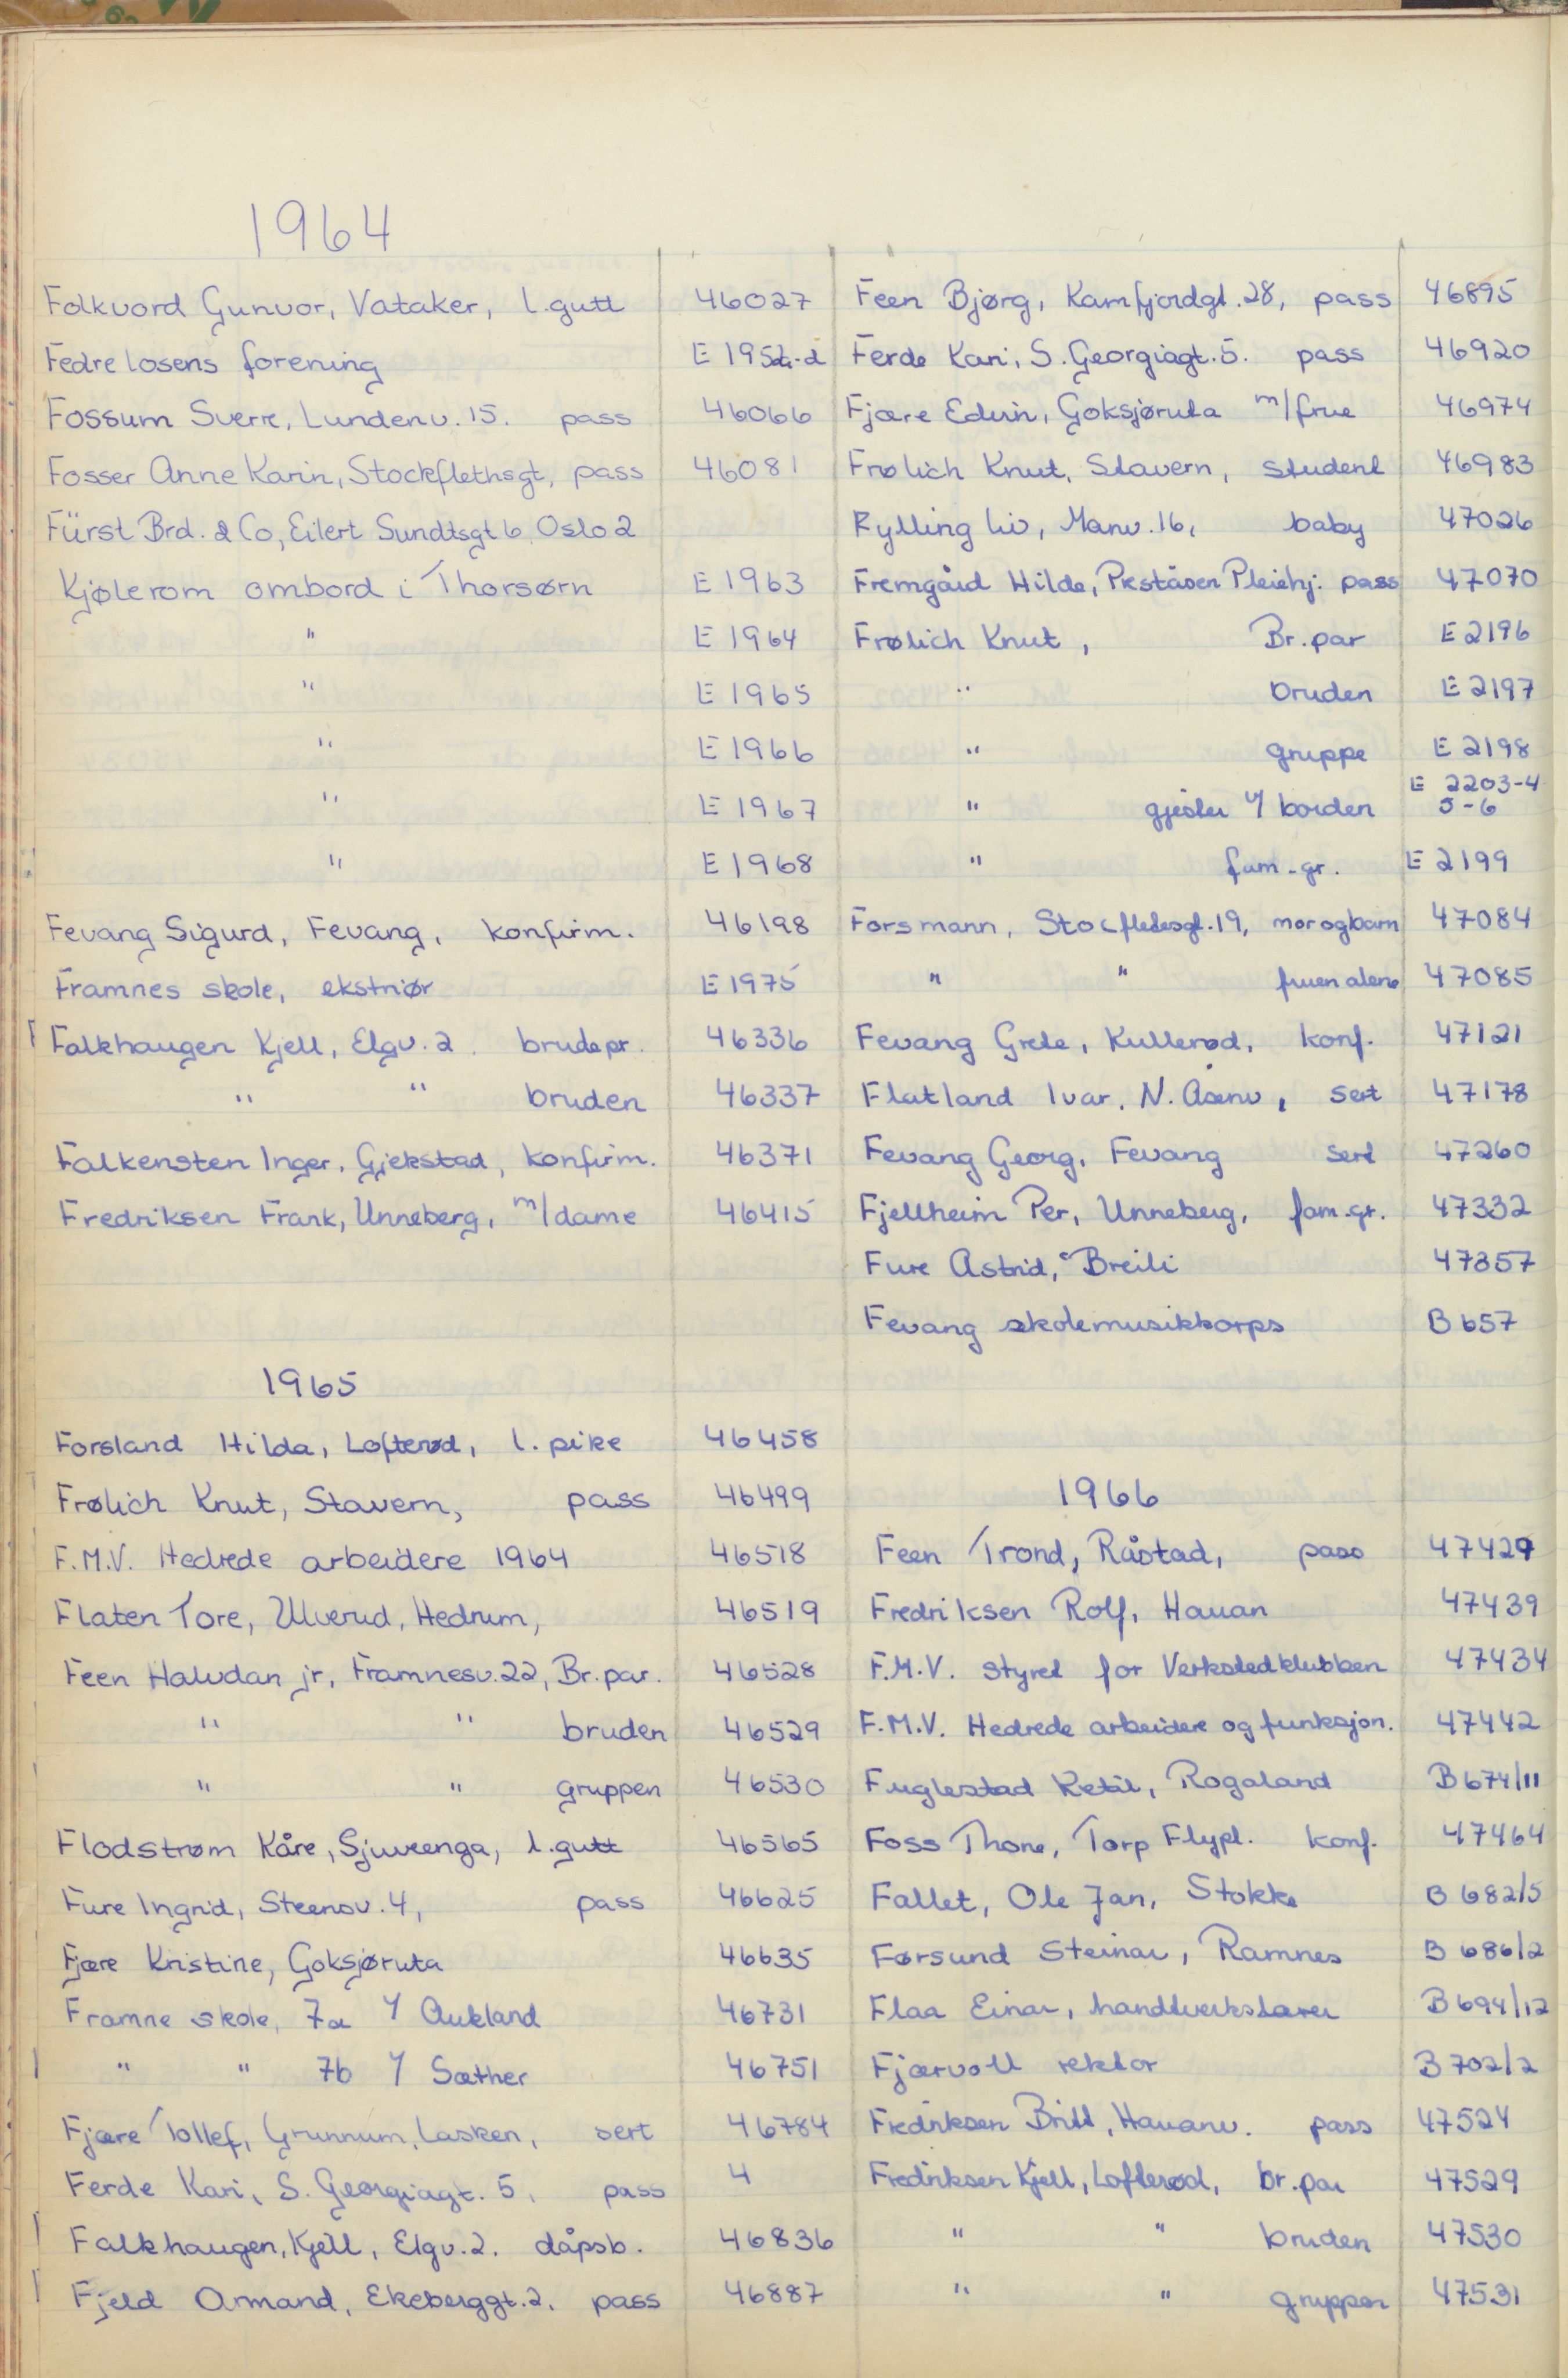 1964
Folkvord Gunvor, Vataker, l.gutt 46027
Fedrelosens forening E 1952a-d
Fossum Sverre, Lundenv. 15. pass 46066
Fosser Anne Karin, Stockflethsgt, pass 46081
Fürst Brd. & Co, Eilert Sundtsgt 6 Oslo 2
Kjølerom ombord i Thorsørn E 1963
" E 1964
" E 1965
" E 1966
" E 1967
" E 1968
Fevang Sigurd, Fevang, konfirm. 46198
Framnes skole, ekstriør E 1975
Falkhaugen Kjell, Elgv. 2. brudepr. 46336
" " bruden 46337
Falkensten Inger, Gjekstad, konfirm. 46371
Fredriksen Frank, Unneberg, m/dame 46415
1965
Forsland Hilda, Lofterød, l. pike 46458
Frølich Knut, Stavern, pass 46499
F.M.V. Hedrede arbeidere 1964 46518
Flaten Tore, Ulverud, Hedrum, 46519
Feen Halvdan jr, Framnesv. 22, Br. par. 46528
" " bruden 46529
" " gruppen 46530
Flodstrøm Kåre, Sjuveenga, l.gutt 46565
Fure Ingrid, Steensv. 4, pass 46625
Fjære Kristine, Goksjøruta 46635
Framne skole, 7a v/ Aukland 46731
" " 7b v/ Sæther 46751
Fjære Tollef, Grunnum, Lasken, sert 46784
Ferde Kari, S. Georgiagt. 5, pass 4
Falkhaugen, Kjell, Elgv. 2. dåpsb. 46836
Fjeld Armand, Ekeberggt. 2. pass 46887
Feen Bjørg, Kamfjordgt. 28, pass 46895
Ferde Kari, S. Georgiagt. 5. pass 46920
Fjære Edvin, Goksjøruta m/frue 46974
Frølich Knut, Stavern, student 46983
Rylling Liv, Manv. 16, baby 47026
Fremgård Hilde, Prståsen Pleiehj. pass 47070
Frølich Knut, Br. par E 2196
" bruden E 2197
" gruppe E 2198
" gjester v/ borden E 2203-4 5-6
" fam.-gr. E 2199
Forsmann, Stocfletesgt. 19, mor og barn 47084
" " fruen alene 47085
Fevang Grete, Kullerød, konf. 47121
Flatland Ivar, N. Åsenv, sert 47178
Fevang Georg, Fevang sert 47260
Fjellheim Per, Unneberg, fam.-gr. 47332
Fure Astrid, Breili 47357
Fevang skolemusikkorps B 657
1966
Feen Trond, Råstad, pass 47429
Fredriksen Rolf, Hauan 47439
F.M.V. styret for Verkstedklubben 47434
F.M.V. Hedrede arbeidere og funksjon. 47442
Fuglestad Ketil, Rogaland B 674/11
Foss Thone, Torp Flypl. konf. 47464
Fallet, Ole Jan, Stokke B 682/5
Førsund Steinar, Ramnes B 686/2
Flaa Einar, handtverkslærer B 694/12
Fjærvoll rektor B 702/2
Fredriksen Britt, Hauanv. pass 47524
Fredriksen Kjell, Lofterød, br. par 47529
" " bruden 47530
" " gruppen 47531